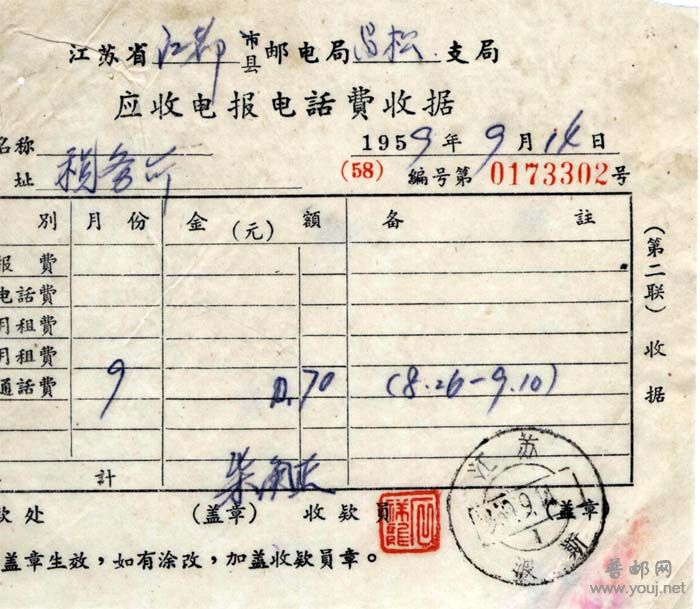 江苏省江都市县邮电局昌松支局
应收电报电话費收据
名称
1959年9月14日
址
(58) 编号第0173302号
別 月份 金(元)額 备註
报費
电話費
月租費
月租費
通話費 9 0.70 (8.26-9.10)
計
款处 (盖章) 收欵員 (盖章)
盖章生效，如有涂改，加盖收欵員章。
(第二联)收据
江苏
9.14
1
普邮网
www.youj.net